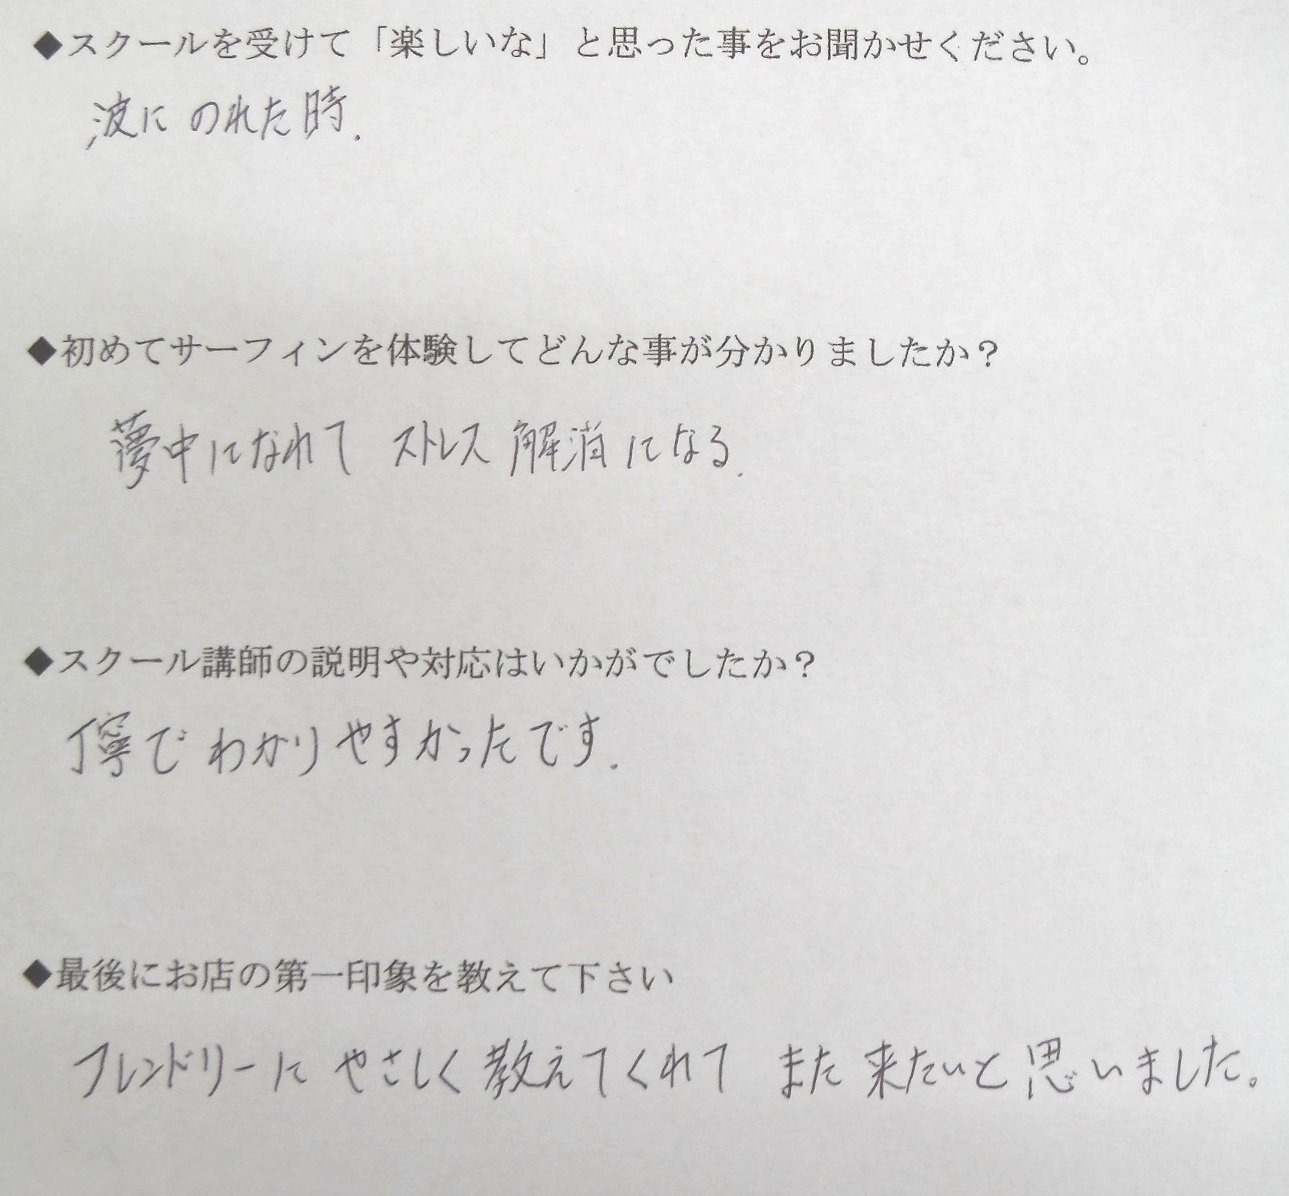 ◆スクールを受けて「楽しいな」と思った事をお聞かせください。
波にのれた時.
◆初めてサーフィンを体験してどんな事が分かりましたか？
夢中になれて ストレス解消になる.
◆スクール講師の説明や対応はいかがでしたか？
丁寧でわかりやすかったです.
◆最後にお店の第一印象を教えて下さい
フレンドリーに やさしく教えてくれて また来たいと思いました。